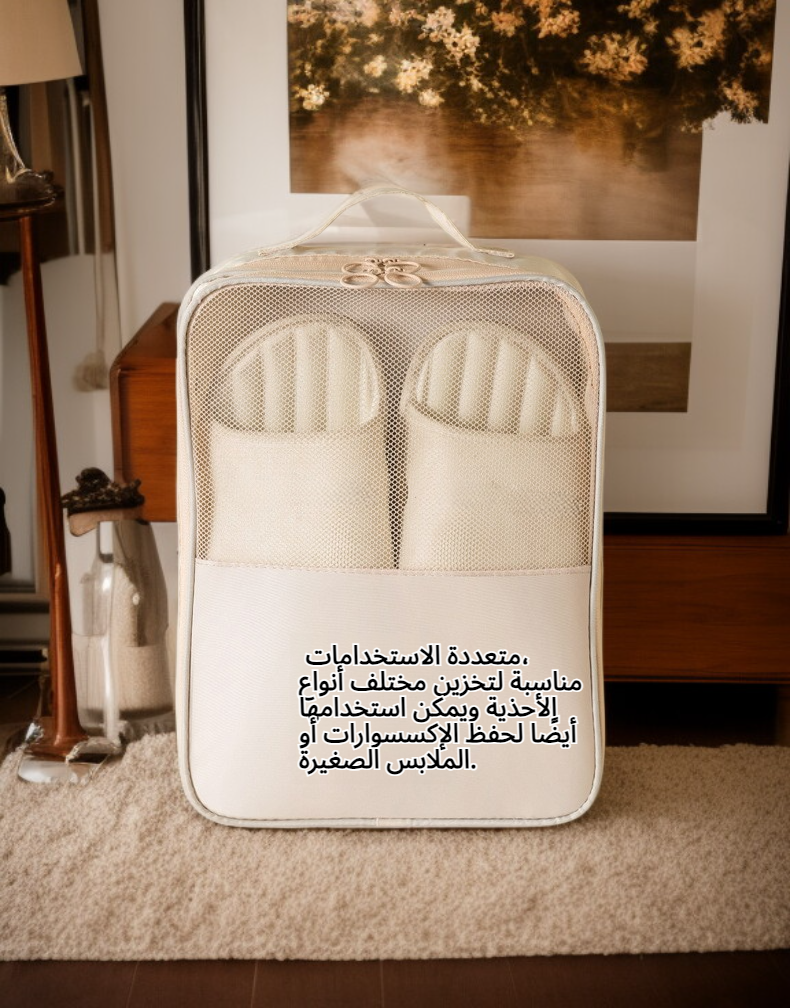 متعددة الاستخدامات،
مناسبة لتخزين مختلف أنواع
الأحذية ويمكن استخدامها
أيضًا لحفظ الإكسسوارات أو
الملابس الصغيرة.